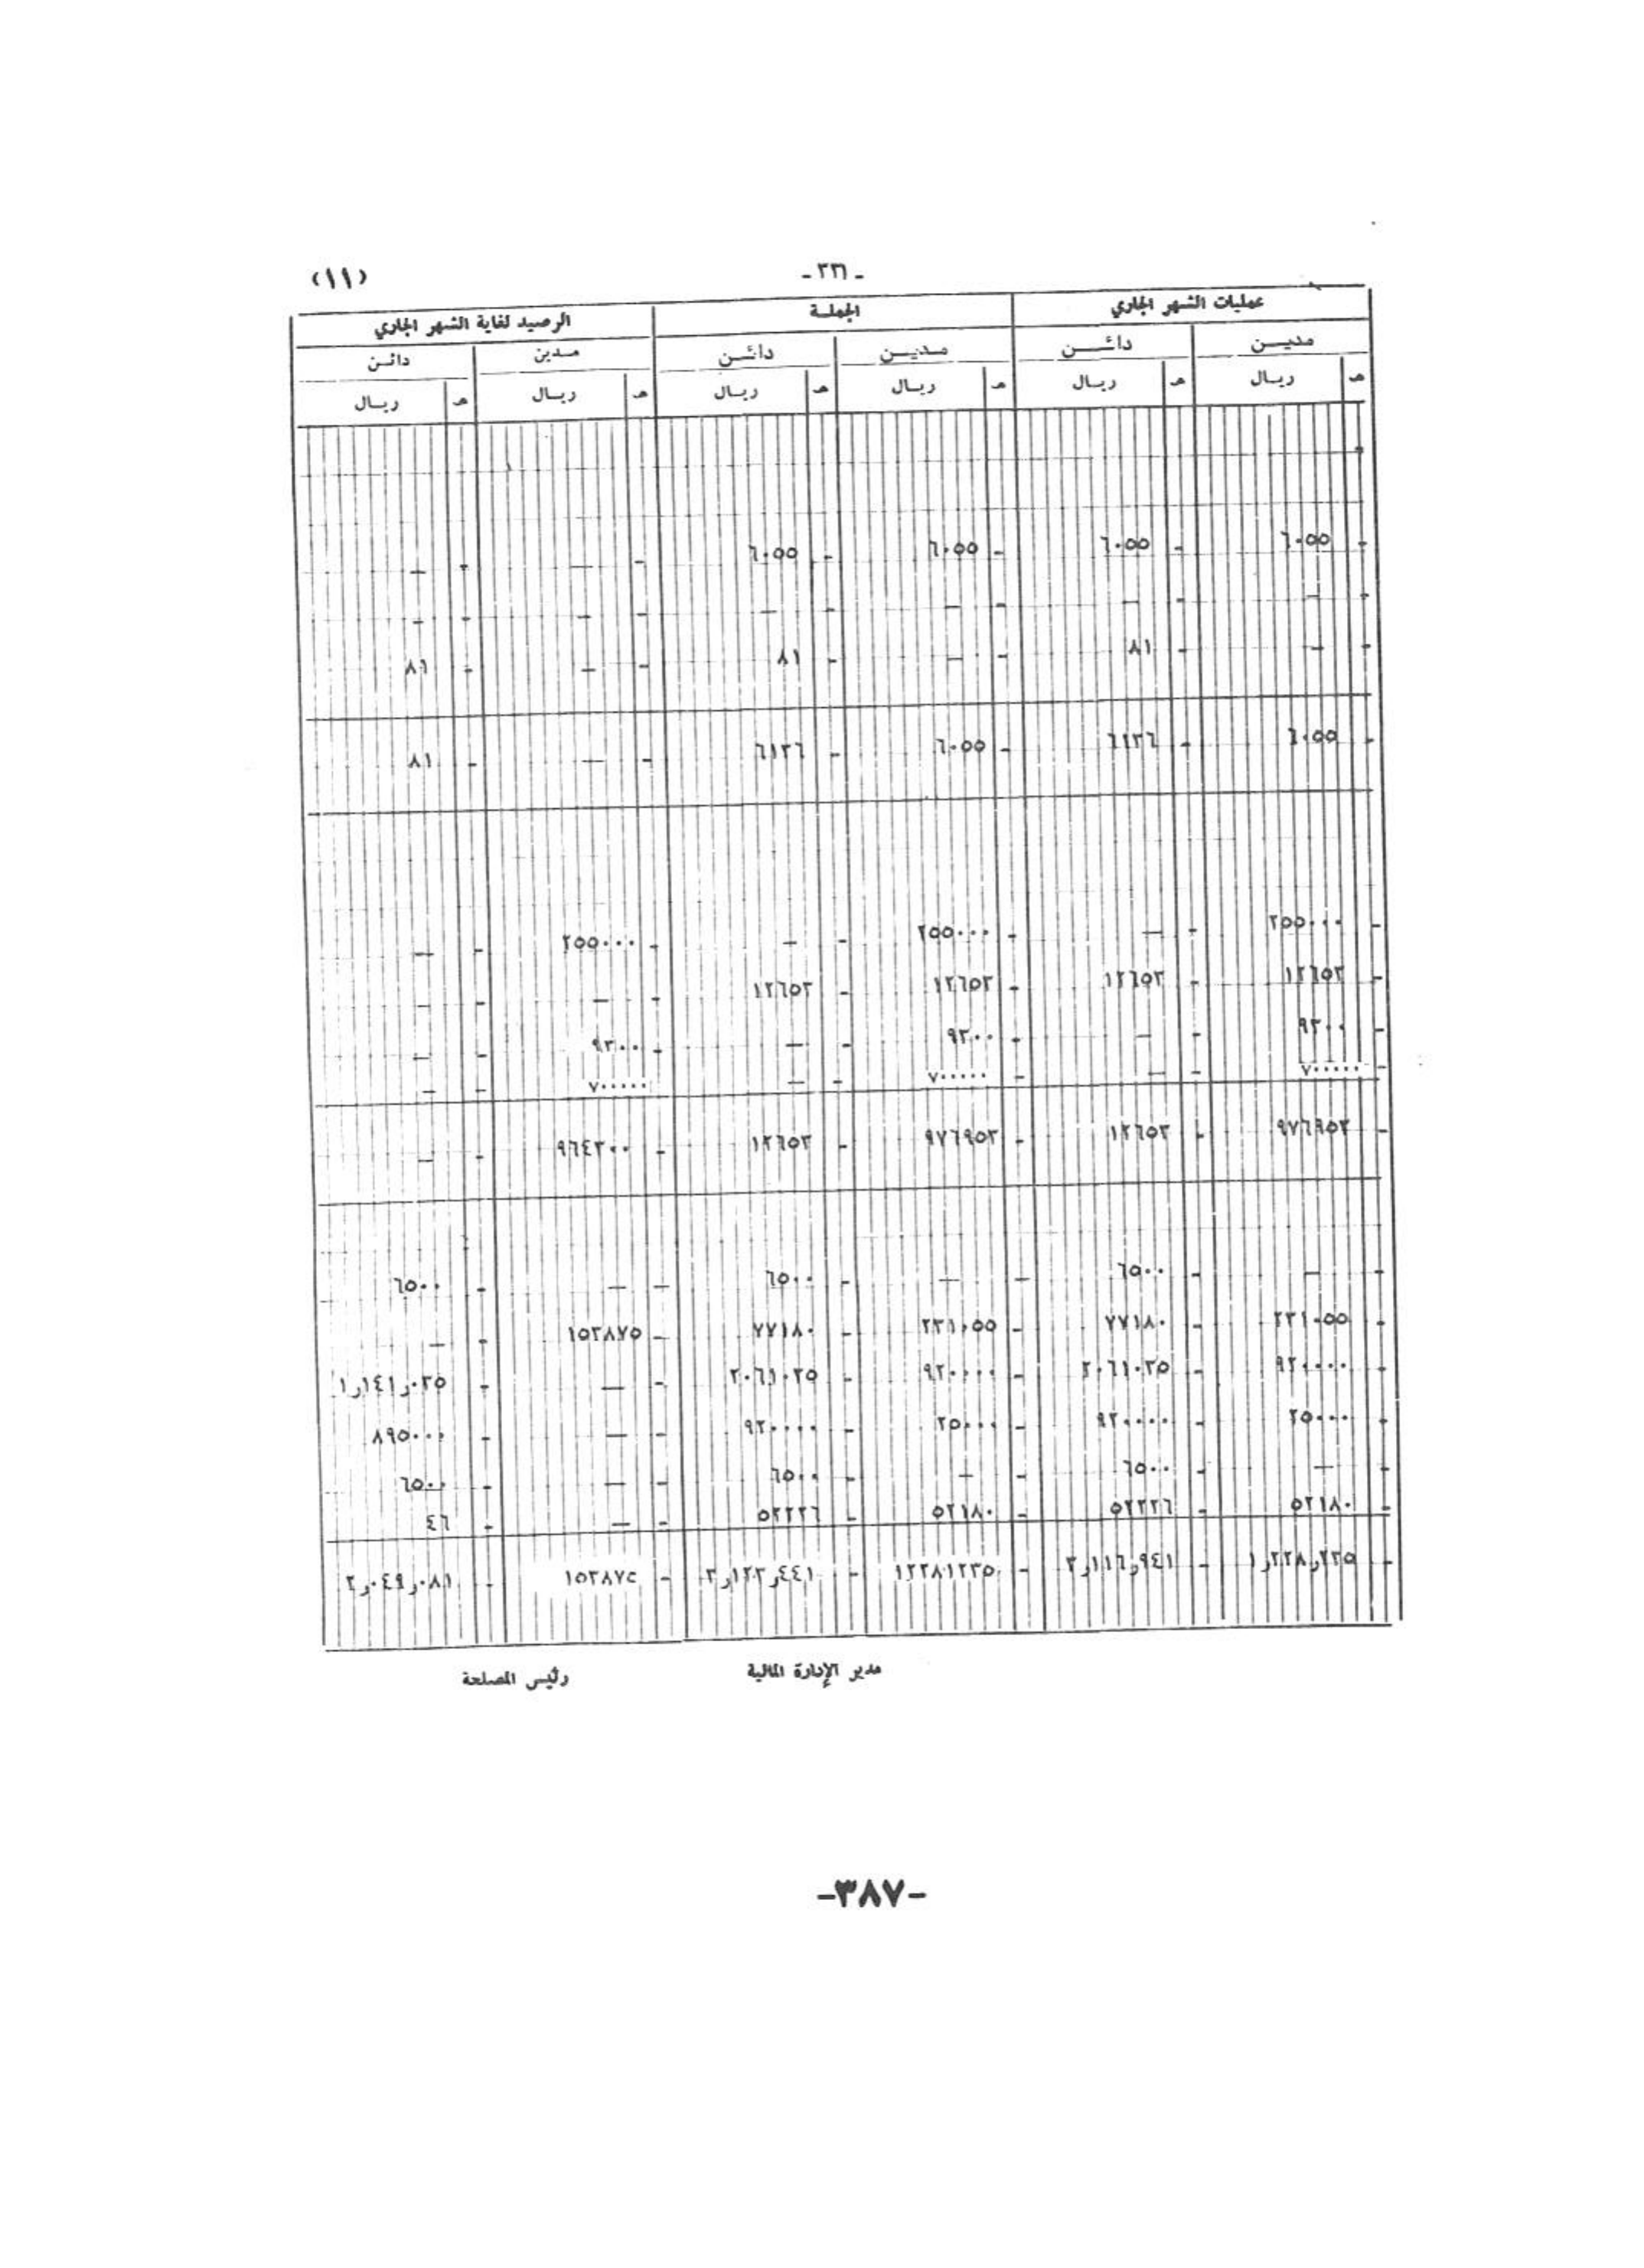 (١١) - ٣٣٦ -
عمليات الشهر الجاري الجملة الرصيد لغاية الشهر الجاري
مديـن دائـن مديـن دائـن مدين دائن
هـ ريال هـ ريال هـ ريال هـ ريال هـ ريال هـ ريال
- ٦٠٥٥ - ٦٠٥٥ - ٦٠٥٥ - ٦٠٥٥ - — - —
- — - — - — - — - — - —
- — - ٨١ - — - ٨١ - — - ٨١
- ٦٠٥٥ - ٦١٣٦ - ٦٠٥٥ - ٦١٣٦ - — - ٨١
- ٢٥٥٠٠٠ - — - ٢٥٥٠٠٠ - — - ٢٥٥٠٠٠ - —
- ١٢٦٥٣ - ١٢٦٥٣ - ١٢٦٥٣ - ١٢٦٥٣ - — - —
- ٩٣٠٠ - — - ٩٣٠٠ - — - ٩٣٠٠ - —
- ٧٠٠٠٠٠ - — - ٧٠٠٠٠٠ - — - ٧٠٠٠٠٠ - —
- ٩٧٦٩٥٣ - ١٢٦٥٣ - ٩٧٦٩٥٣ - ١٢٦٥٣ - ٩٦٤٣٠٠ - —
- — - ٦٥٠٠ - — - ٦٥٠٠ - — - ٦٥٠٠
- ٢٣١٠٥٥ - ٧٧١٨٠ - ٢٣١٠٥٥ - ٧٧١٨٠ - ١٥٣٨٧٥ - —
- ٩٢٠٠٠٠ - ٢٠٦١٠٣٥ - ٩٢٠٠٠٠ - ٢٠٦١٠٣٥ - — - ١٫١٤١٫٠٣٥
- ٢٥٠٠٠ - ٩٢٠٠٠٠ - ٢٥٠٠٠ - ٩٢٠٠٠٠ - — - ٨٩٥٠٠٠
- — - ٦٥٠٠ - — - ٦٥٠٠ - — - ٦٥٠٠
- ٥٢١٨٠ - ٥٢٢٢٦ - ٥٢١٨٠ - ٥٢٢٢٦ - — - ٤٦
- ١٫٢٢٨٫٢٣٥ - ٣٫١١٦٫٩٤١ - - ٣٫١٢٣٫٤٤١ - - ٢٫٠٤٩٫٠٨١
مدير الإدارة المالية رئيس المصلحة
-٣٨٧-